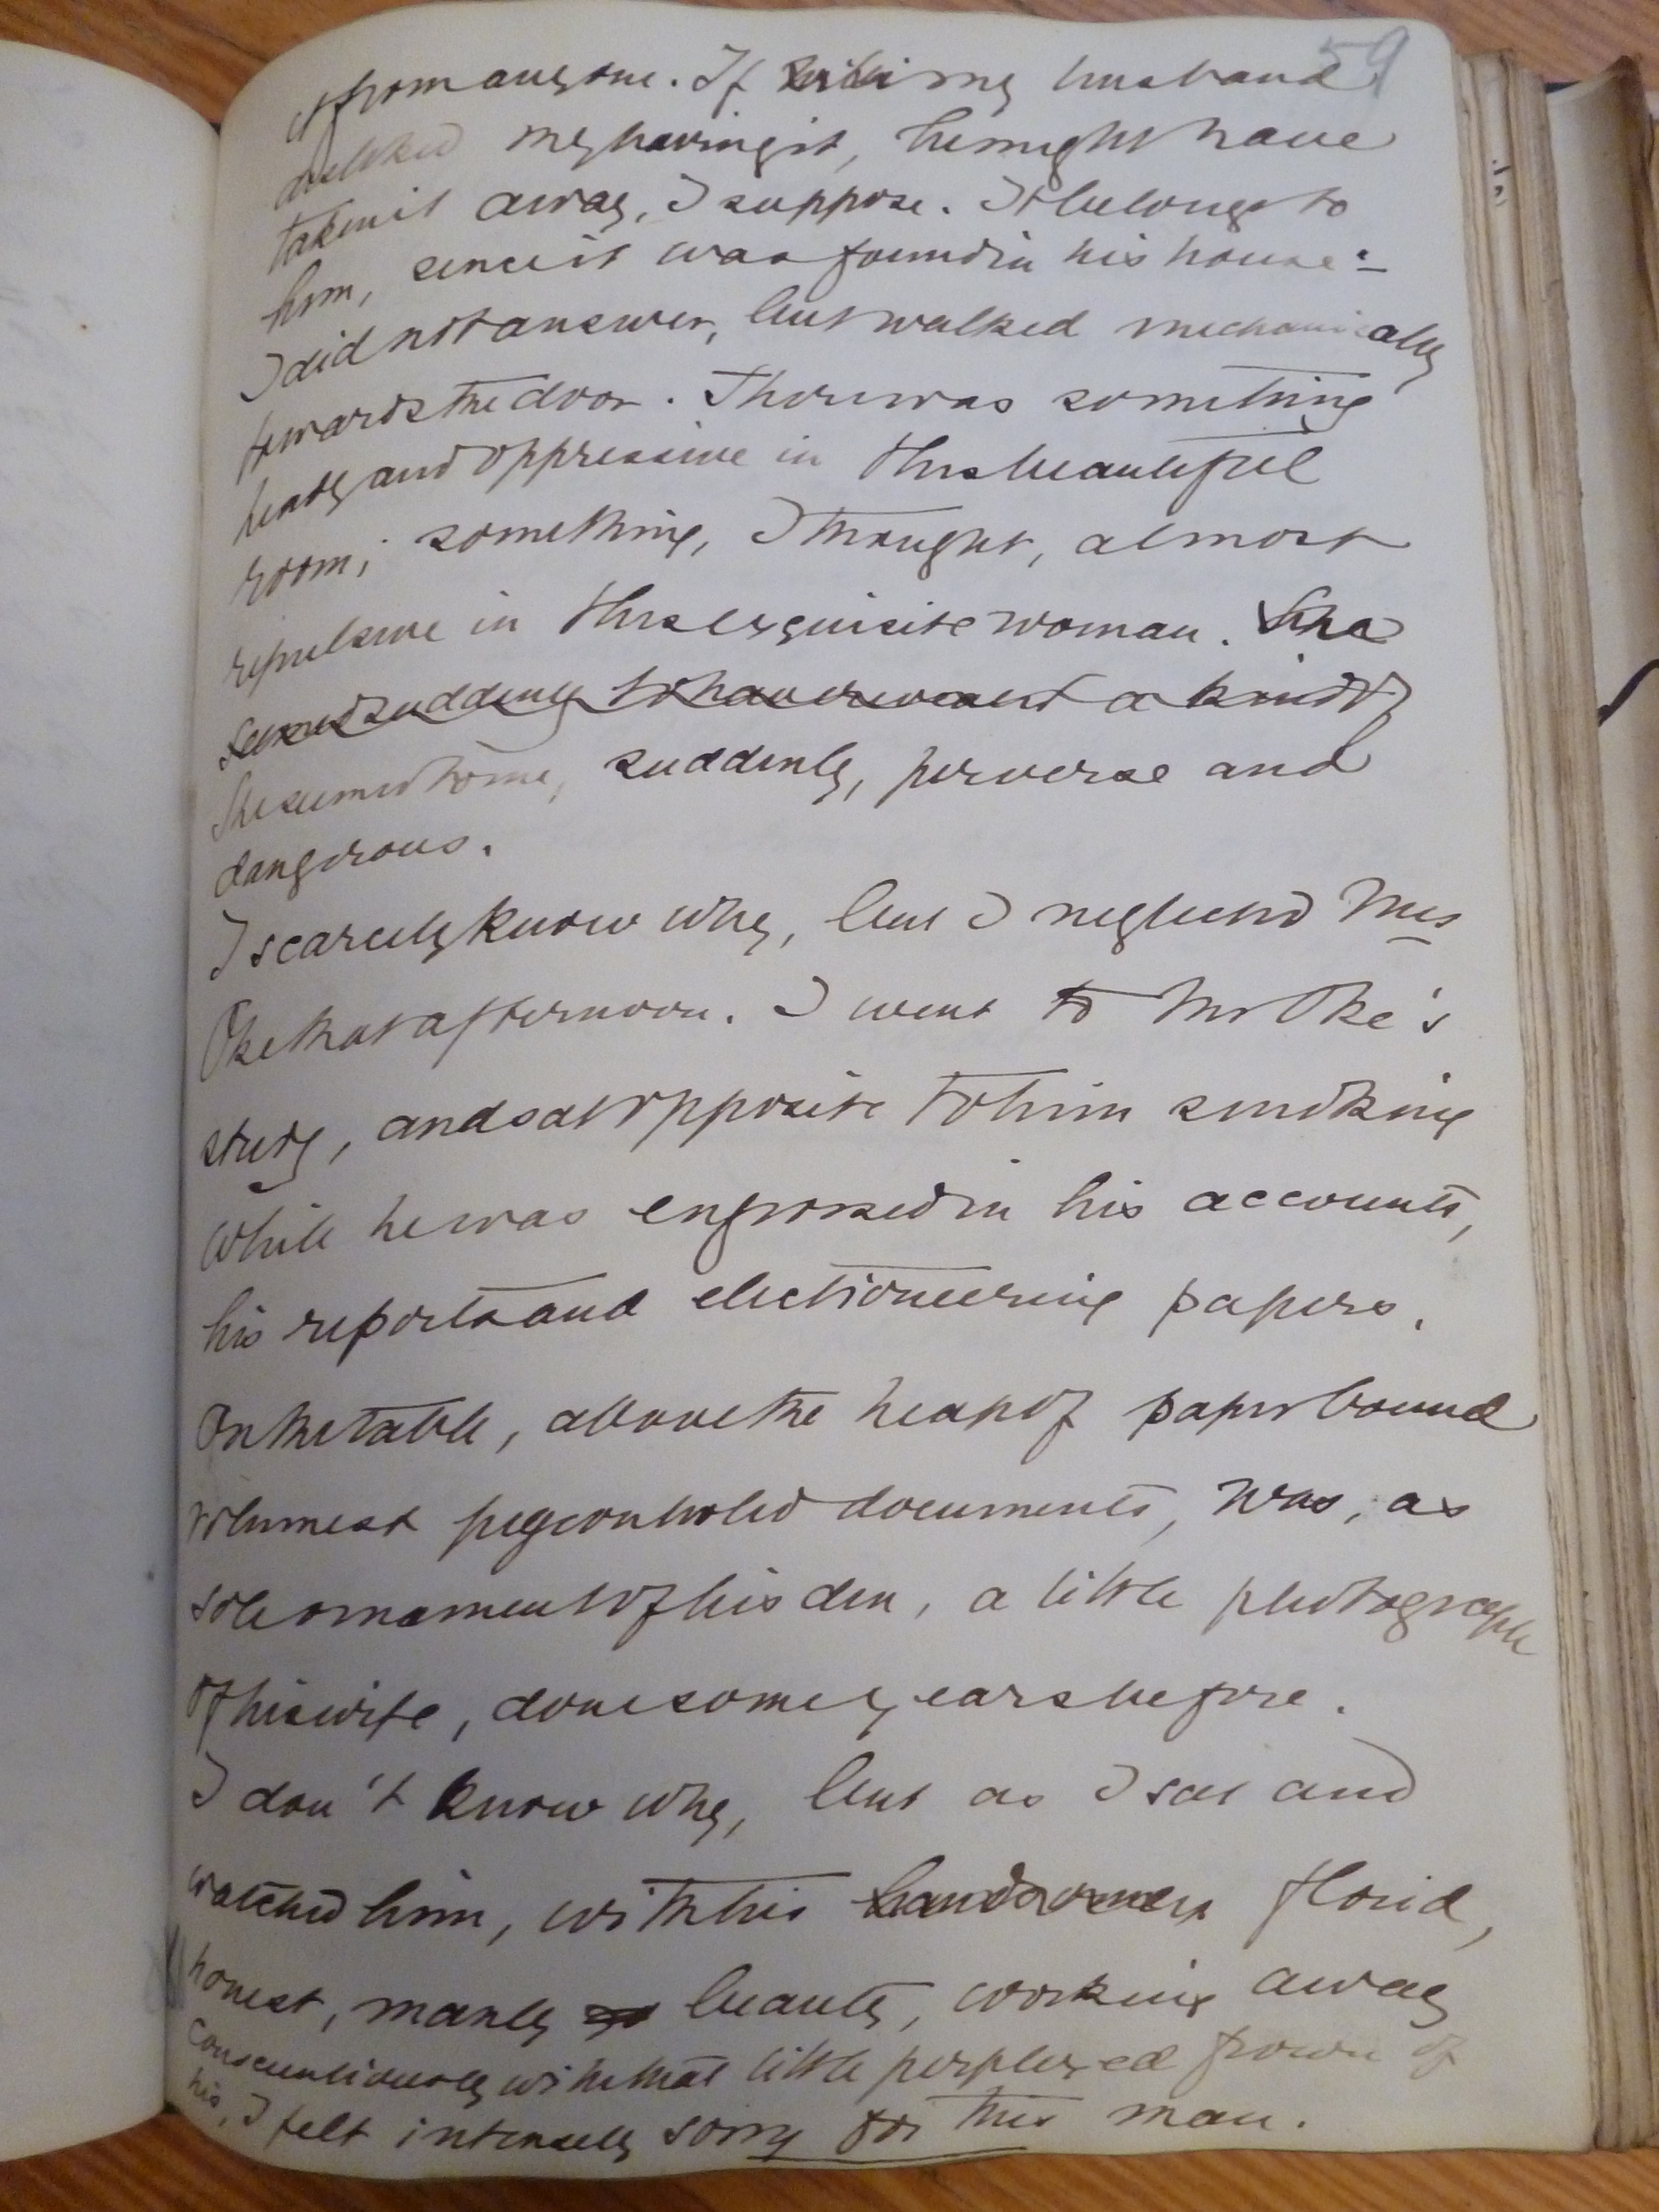 59
it from anyone. If my husband
disliked my having it, he might have
taken it away, I suppose. It belongs to
him, since it was found in his house:–
I did not answer, but walked mechanically
towards the door. There was something
heady and oppressive in this beautiful
room; something, I thought, almost
repulsive in this exquisite woman. She
seemed suddenly to have a kind of
She seemed to me, suddenly, perverse and
dangerous.
I scarcely know why, but I neglected Mrs
Oke that afternoon. I went to Mr Oke's
study, and sat opposite to him smoking
while he was engrossed in his accounts,
his reports and electioneering papers.
On the table, above the heap of paper bound
volumes & pigeonholed documents, was, as
sole ornament of his den, a little photograph
of his wife, done some years before.
I don't know why, but as I sat and
watched him, with his florid,
honest, manly beauty, working away
conscientiously with that little perplexed frown of
his, I felt intensely sorry for this man.